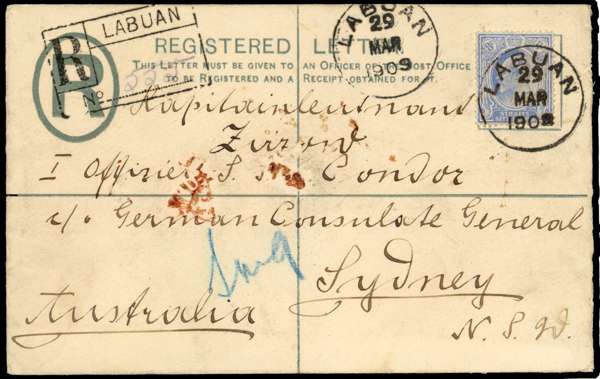 R LABUAN
No 525
R
REGISTERED LETTER
THIS LETTER MUST BE GIVEN TO AN OFFICER OF THE POST OFFICE
TO BE REGISTERED AND A RECEIPT OBTAINED FOR IT.
LABUAN
29
MAR
1903
LABUAN
29
MAR
1902
Kapitainleutnant
Zirzow
I Offizier S. M. S. Condor
c/o German Consulate General
Sydney
Australia
N. S. W.